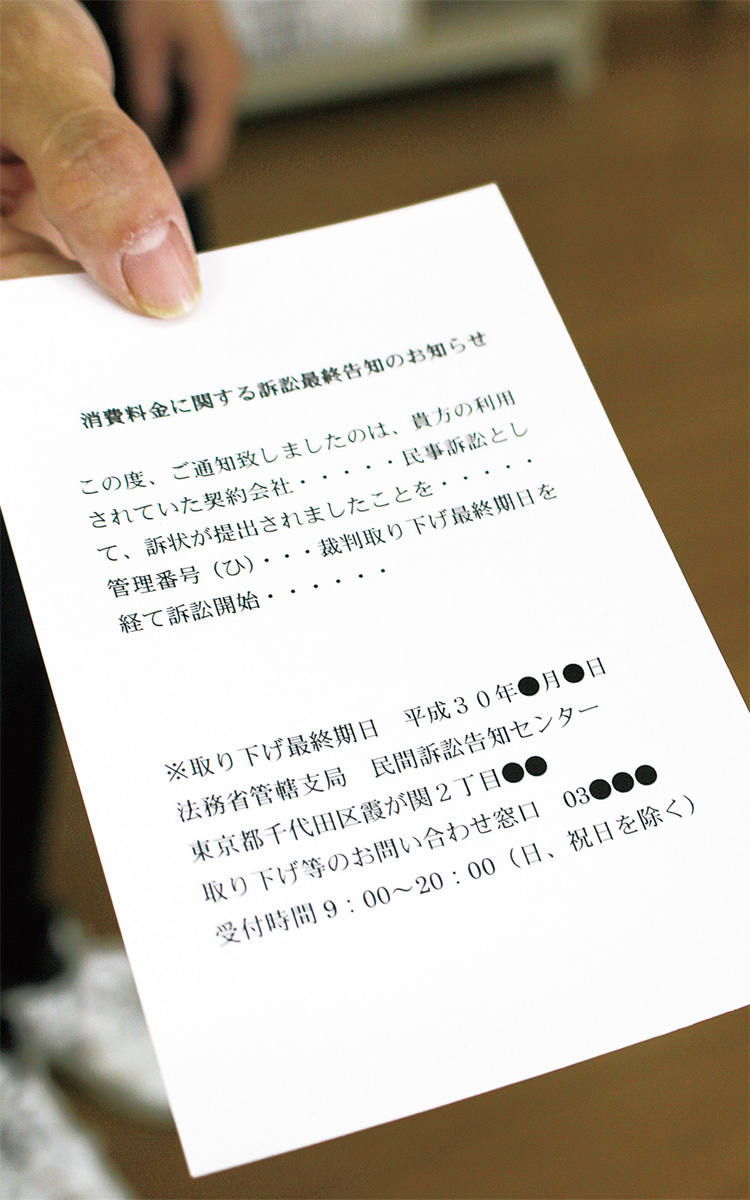 消費料金に関する訴訟最終告知のお知らせ
この度、ご通知致しましたのは、貴方の利用
されていた契約会社・・・・・民事訴訟とし
て、訴状が提出されましたことを・・・・・
管理番号（ひ）・・・裁判取り下げ最終期日を
経て訴訟開始・・・・・・
※取り下げ最終期日　平成３０年●月●日
法務省管轄支局　民間訴訟告知センター
東京都千代田区霞が関２丁目●●
取り下げ等のお問い合わせ窓口　03●●●
受付時間 9：00～20：00（日、祝日を除く）